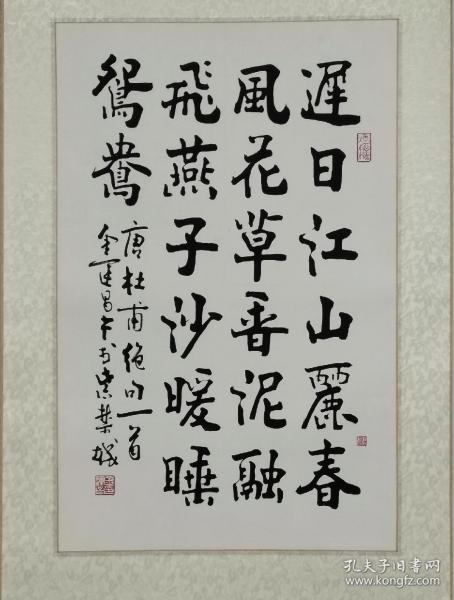 遲日江山麗春
風花草香泥融
飛燕子沙暖睡
鴛鴦
唐杜甫絕句一首
金運昌书於紫禁城
孔夫子旧书网
www.kongfz.com